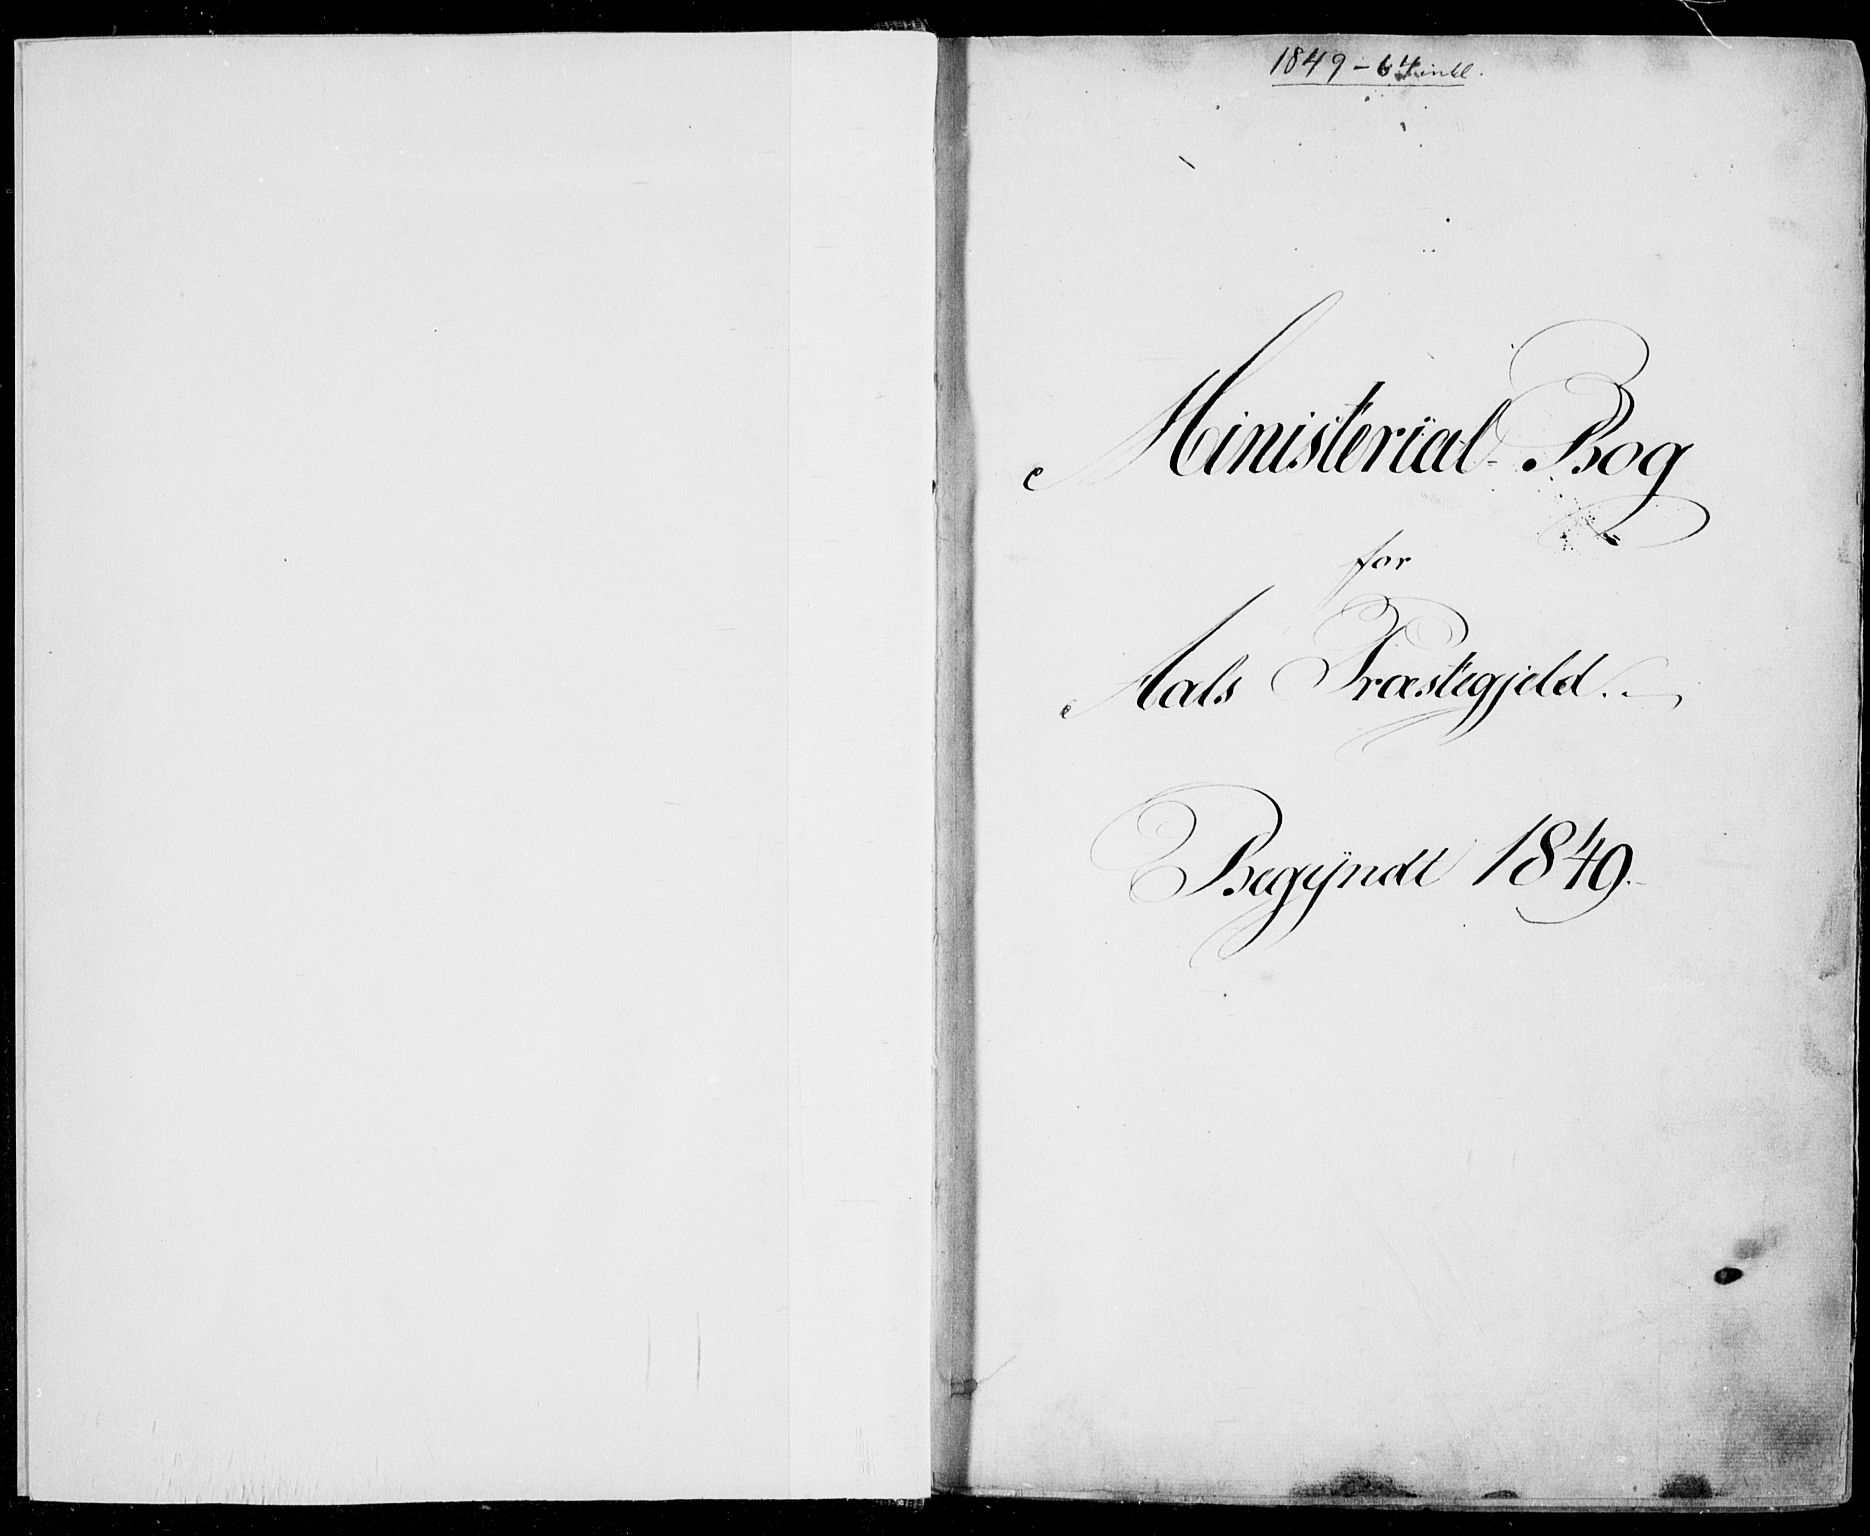 1849-64 inkl.
Ministerial-Bog
for
Aals Præstegjeld.
Begÿndt 1849.